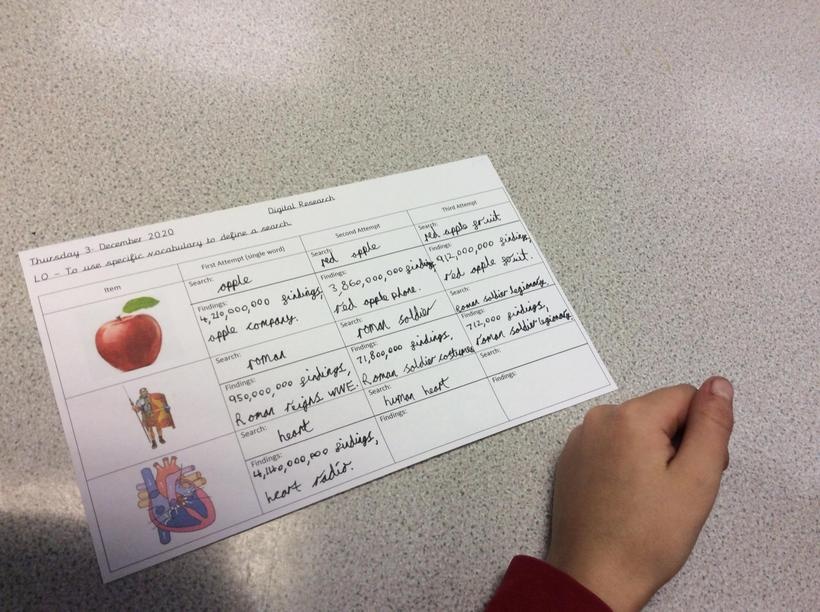 Digital Research
Thursday 3. December 2020
LO - To use specific vocabulary to define a search.
Item
First Attempt (single word)
Second Attempt
Third Attempt
Search:
apple
Search:
red apple
Search:
red apple fruit
Findings:
4,210,000,000 findings,
apple company.
Findings:
3,860,000,000 findings,
red apple phone.
Findings:
912,000,000 findings,
red apple fruit.
Search:
roman
Search:
roman soldier
Search:
Roman soldier legionary.
Findings:
950,000,000 findings,
Roman reigns WWE.
Findings:
71,800,000 findings,
Roman soldier costumes
Findings:
712,000 findings,
roman soldier legionary.
Search:
heart
Search:
human heart
Search:
Findings:
4,140,000,000 findings,
heart radio.
Findings:
Findings: